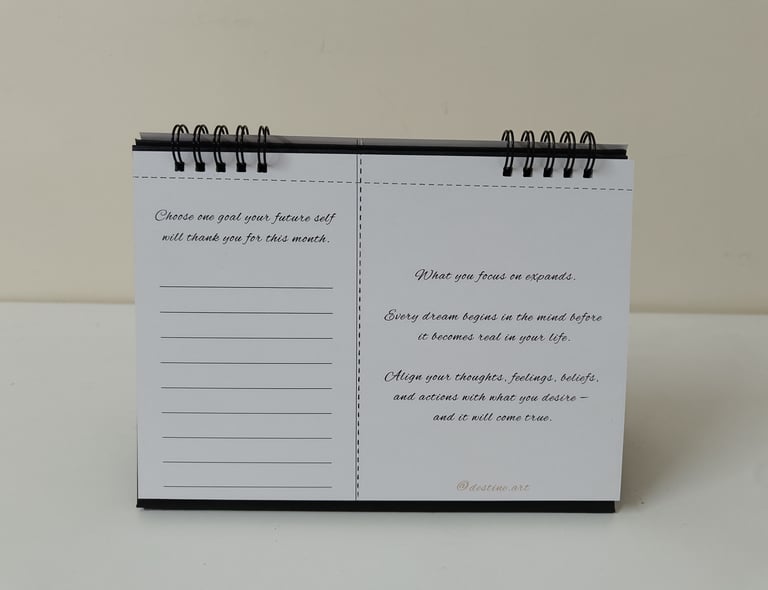 Choose one goal your future self
will thank you for this month.
What you focus on expands.
Every dream begins in the mind before
it becomes real in your life.
Align your thoughts, feelings, beliefs,
and actions with what you desire –
and it will come true.
@destine.art